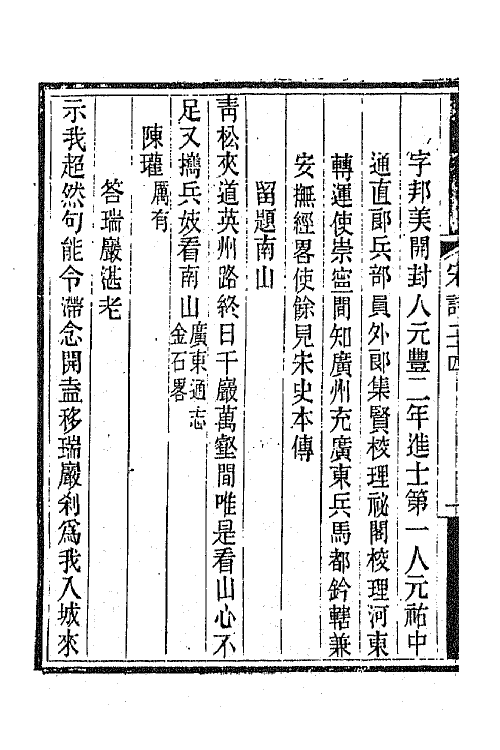 字邦美開封人元豐二年進士第一人元祐中
通直郎兵部員外郎集賢校理祕閣校理河東
轉運使崇寍間知廣州充廣東兵馬都鈐轄兼
安撫經畧使餘見宋史本傳
留題南山
靑松夾道英州路終日千巖萬壑間唯是看山心不
足又攜兵妓看南山廣東通志
金石畧
陳瓘厲有
答瑞巖湛老
示我超然句能令滯念開葢移瑞巖刹爲我入城來